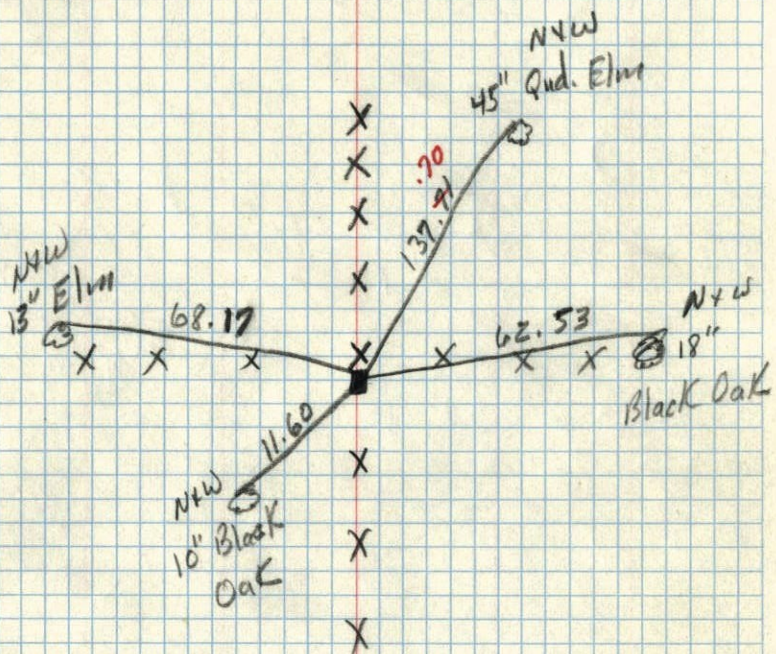 N+W
45" Qud. Elm
.70
137.71
N+W
13" Elm
68.17
N+W
62.53
18"
Black Oak
11.60
N+W
10" Black
Oak